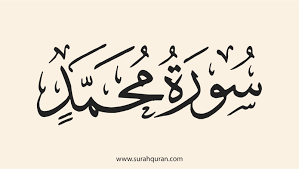 سُورَةُ مُحَمَّدٍ
www.surahquran.com